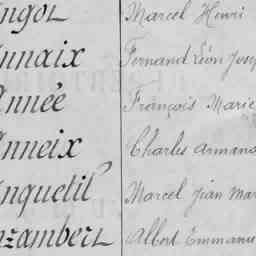 ngot Marcel Henri
nnaix Fernand Léon Josep
Année François Marie
Anneix Charles Armand
nquetil Marcel Jean Mar
nzambert Albert Emmanu